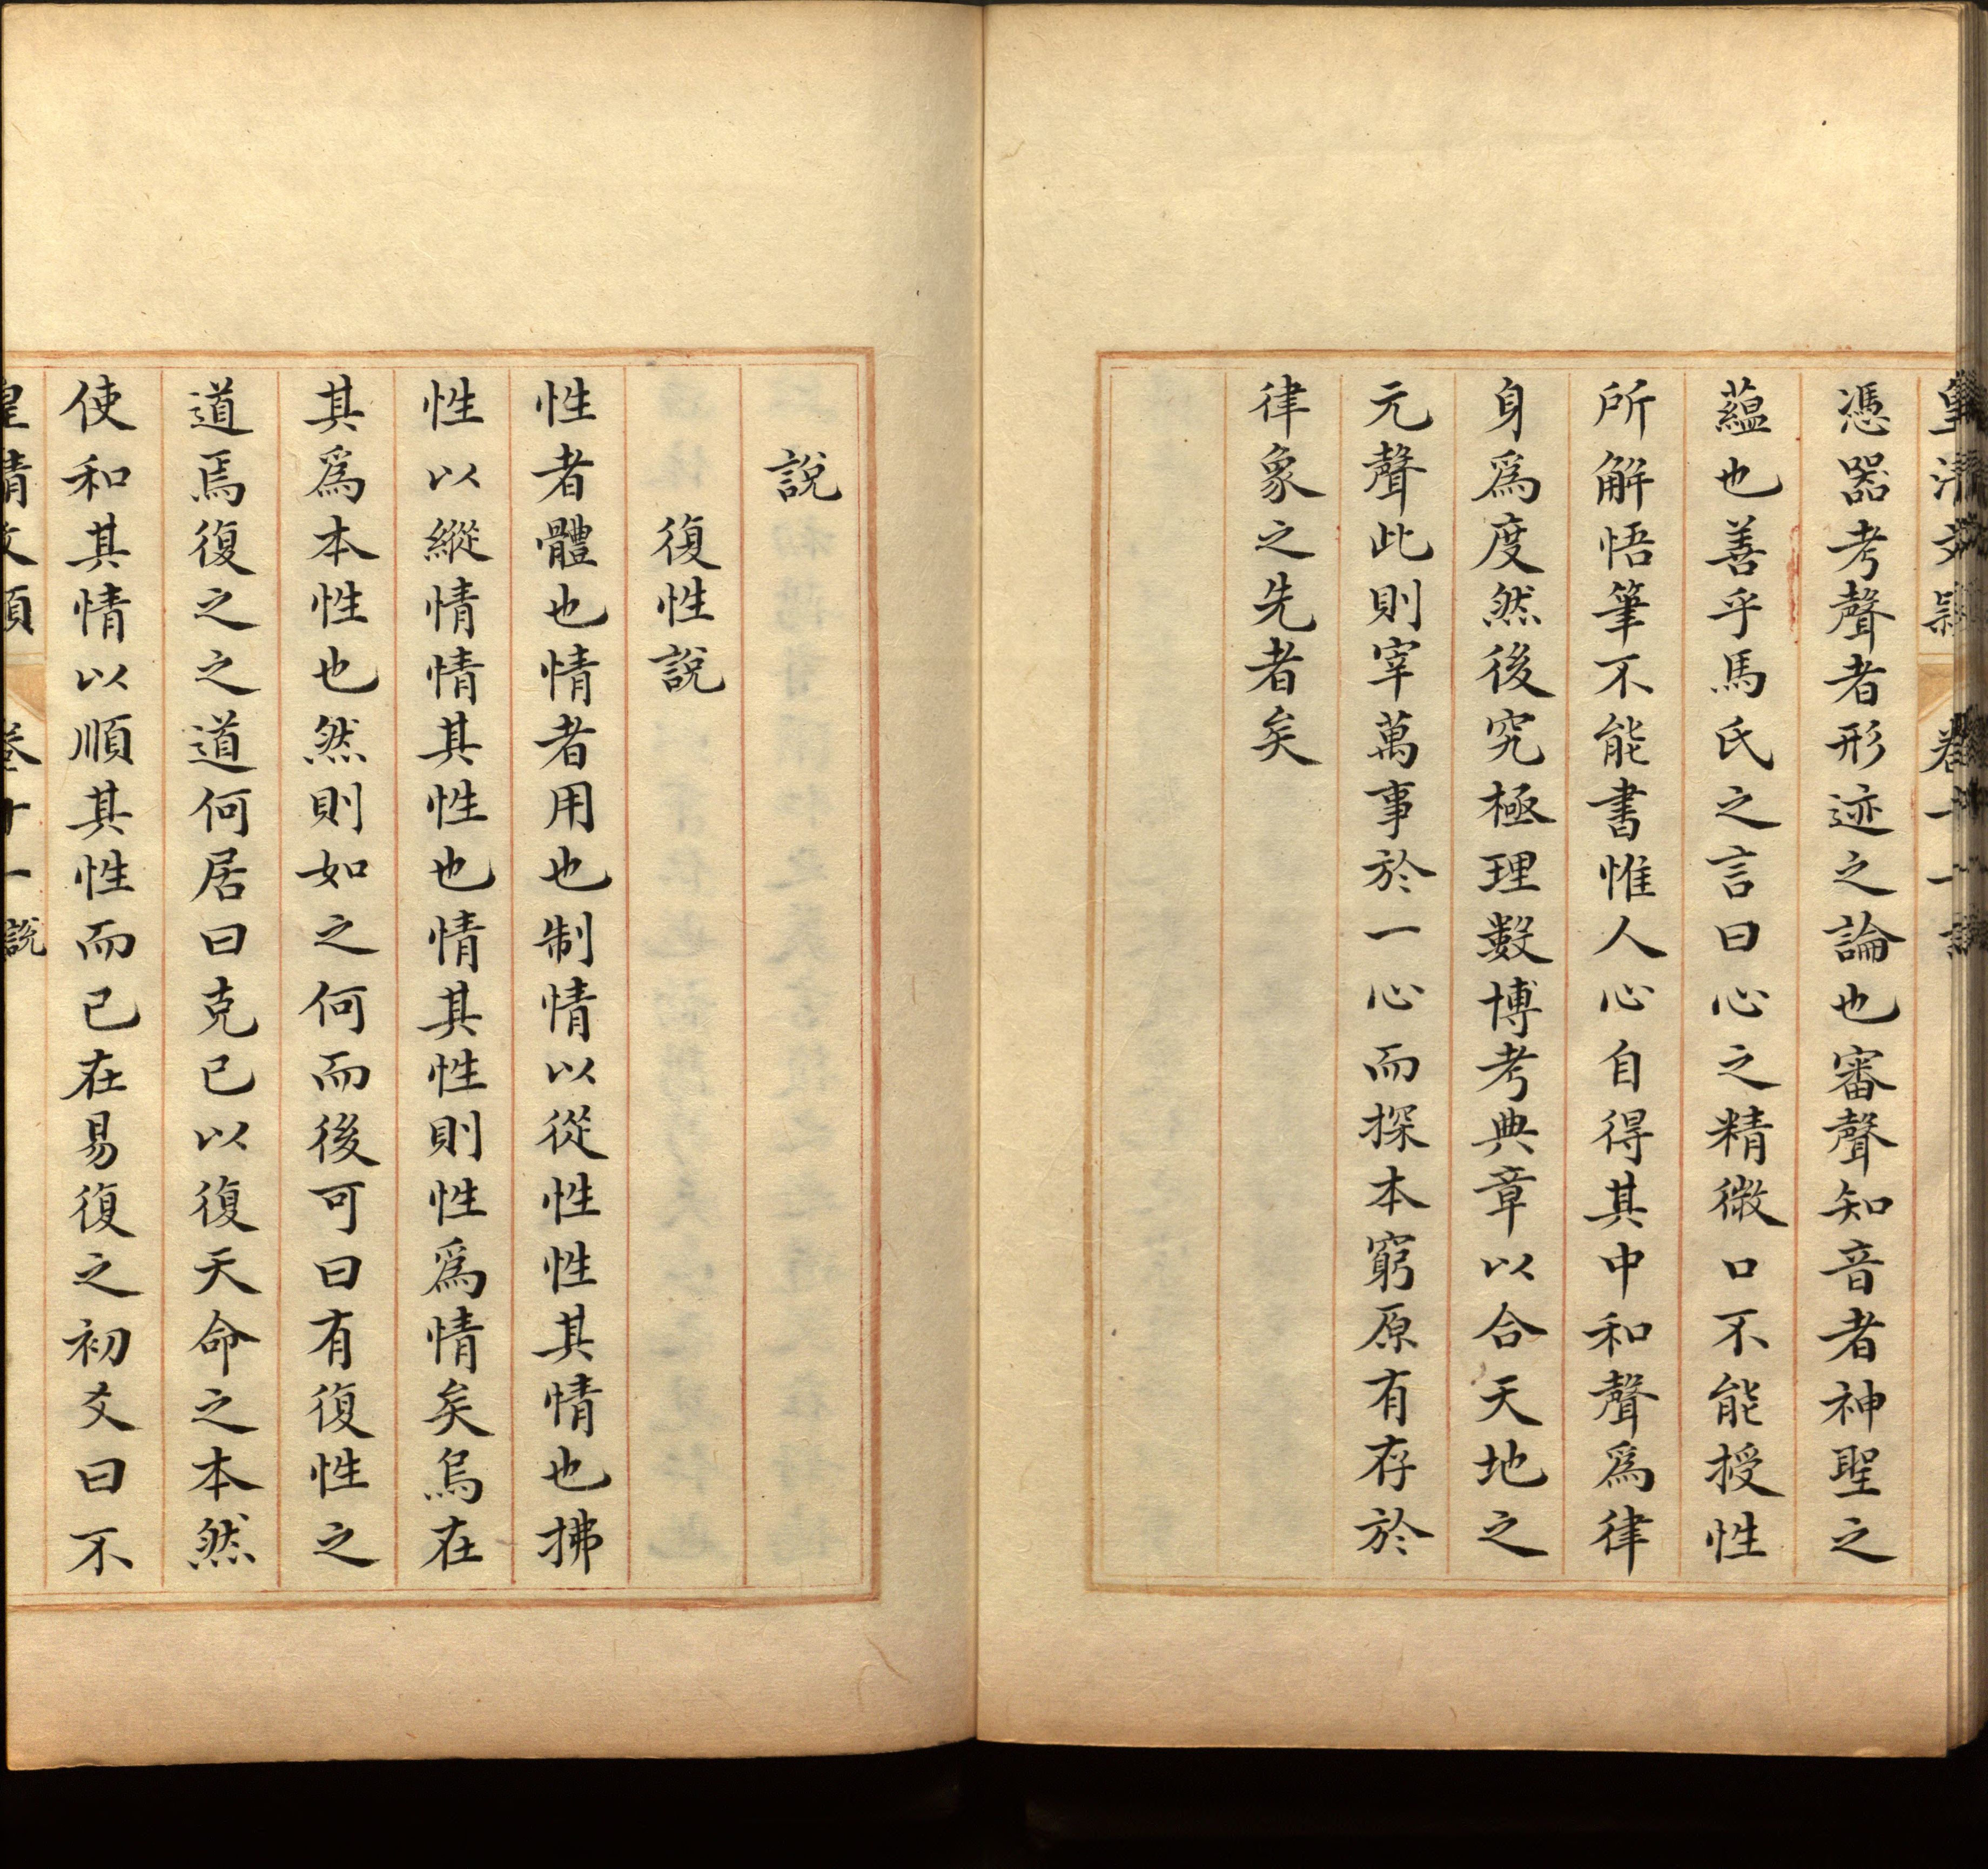 憑器考聲者形迹之論也審聲知音者神聖之
蘊也善乎馬氏之言曰心之精微口不能授性
所解悟筆不能書惟人心自得其中和聲爲律
身爲度然後究極理數博考典章以合天地之
元聲此則宰萬事於一心而探本窮原有存於
律象之先者矣
說
復性說
性者體也情者用也制情以從性性其情也拂
性以縱情情其性也情其性則性爲情矣烏在
其爲本性也然則如之何而後可曰有復性之
道焉復之之道何居曰克已以復天命之本然
使和其情以順其性而已在易復之初爻曰不